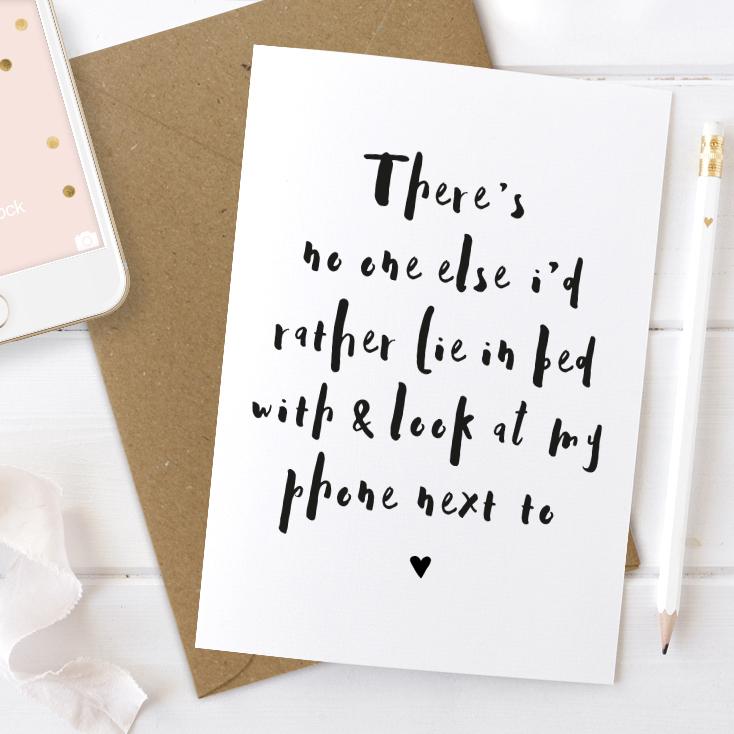 There's
no one else i'd
rather lie in bed
with & look at my
phone next to
♥